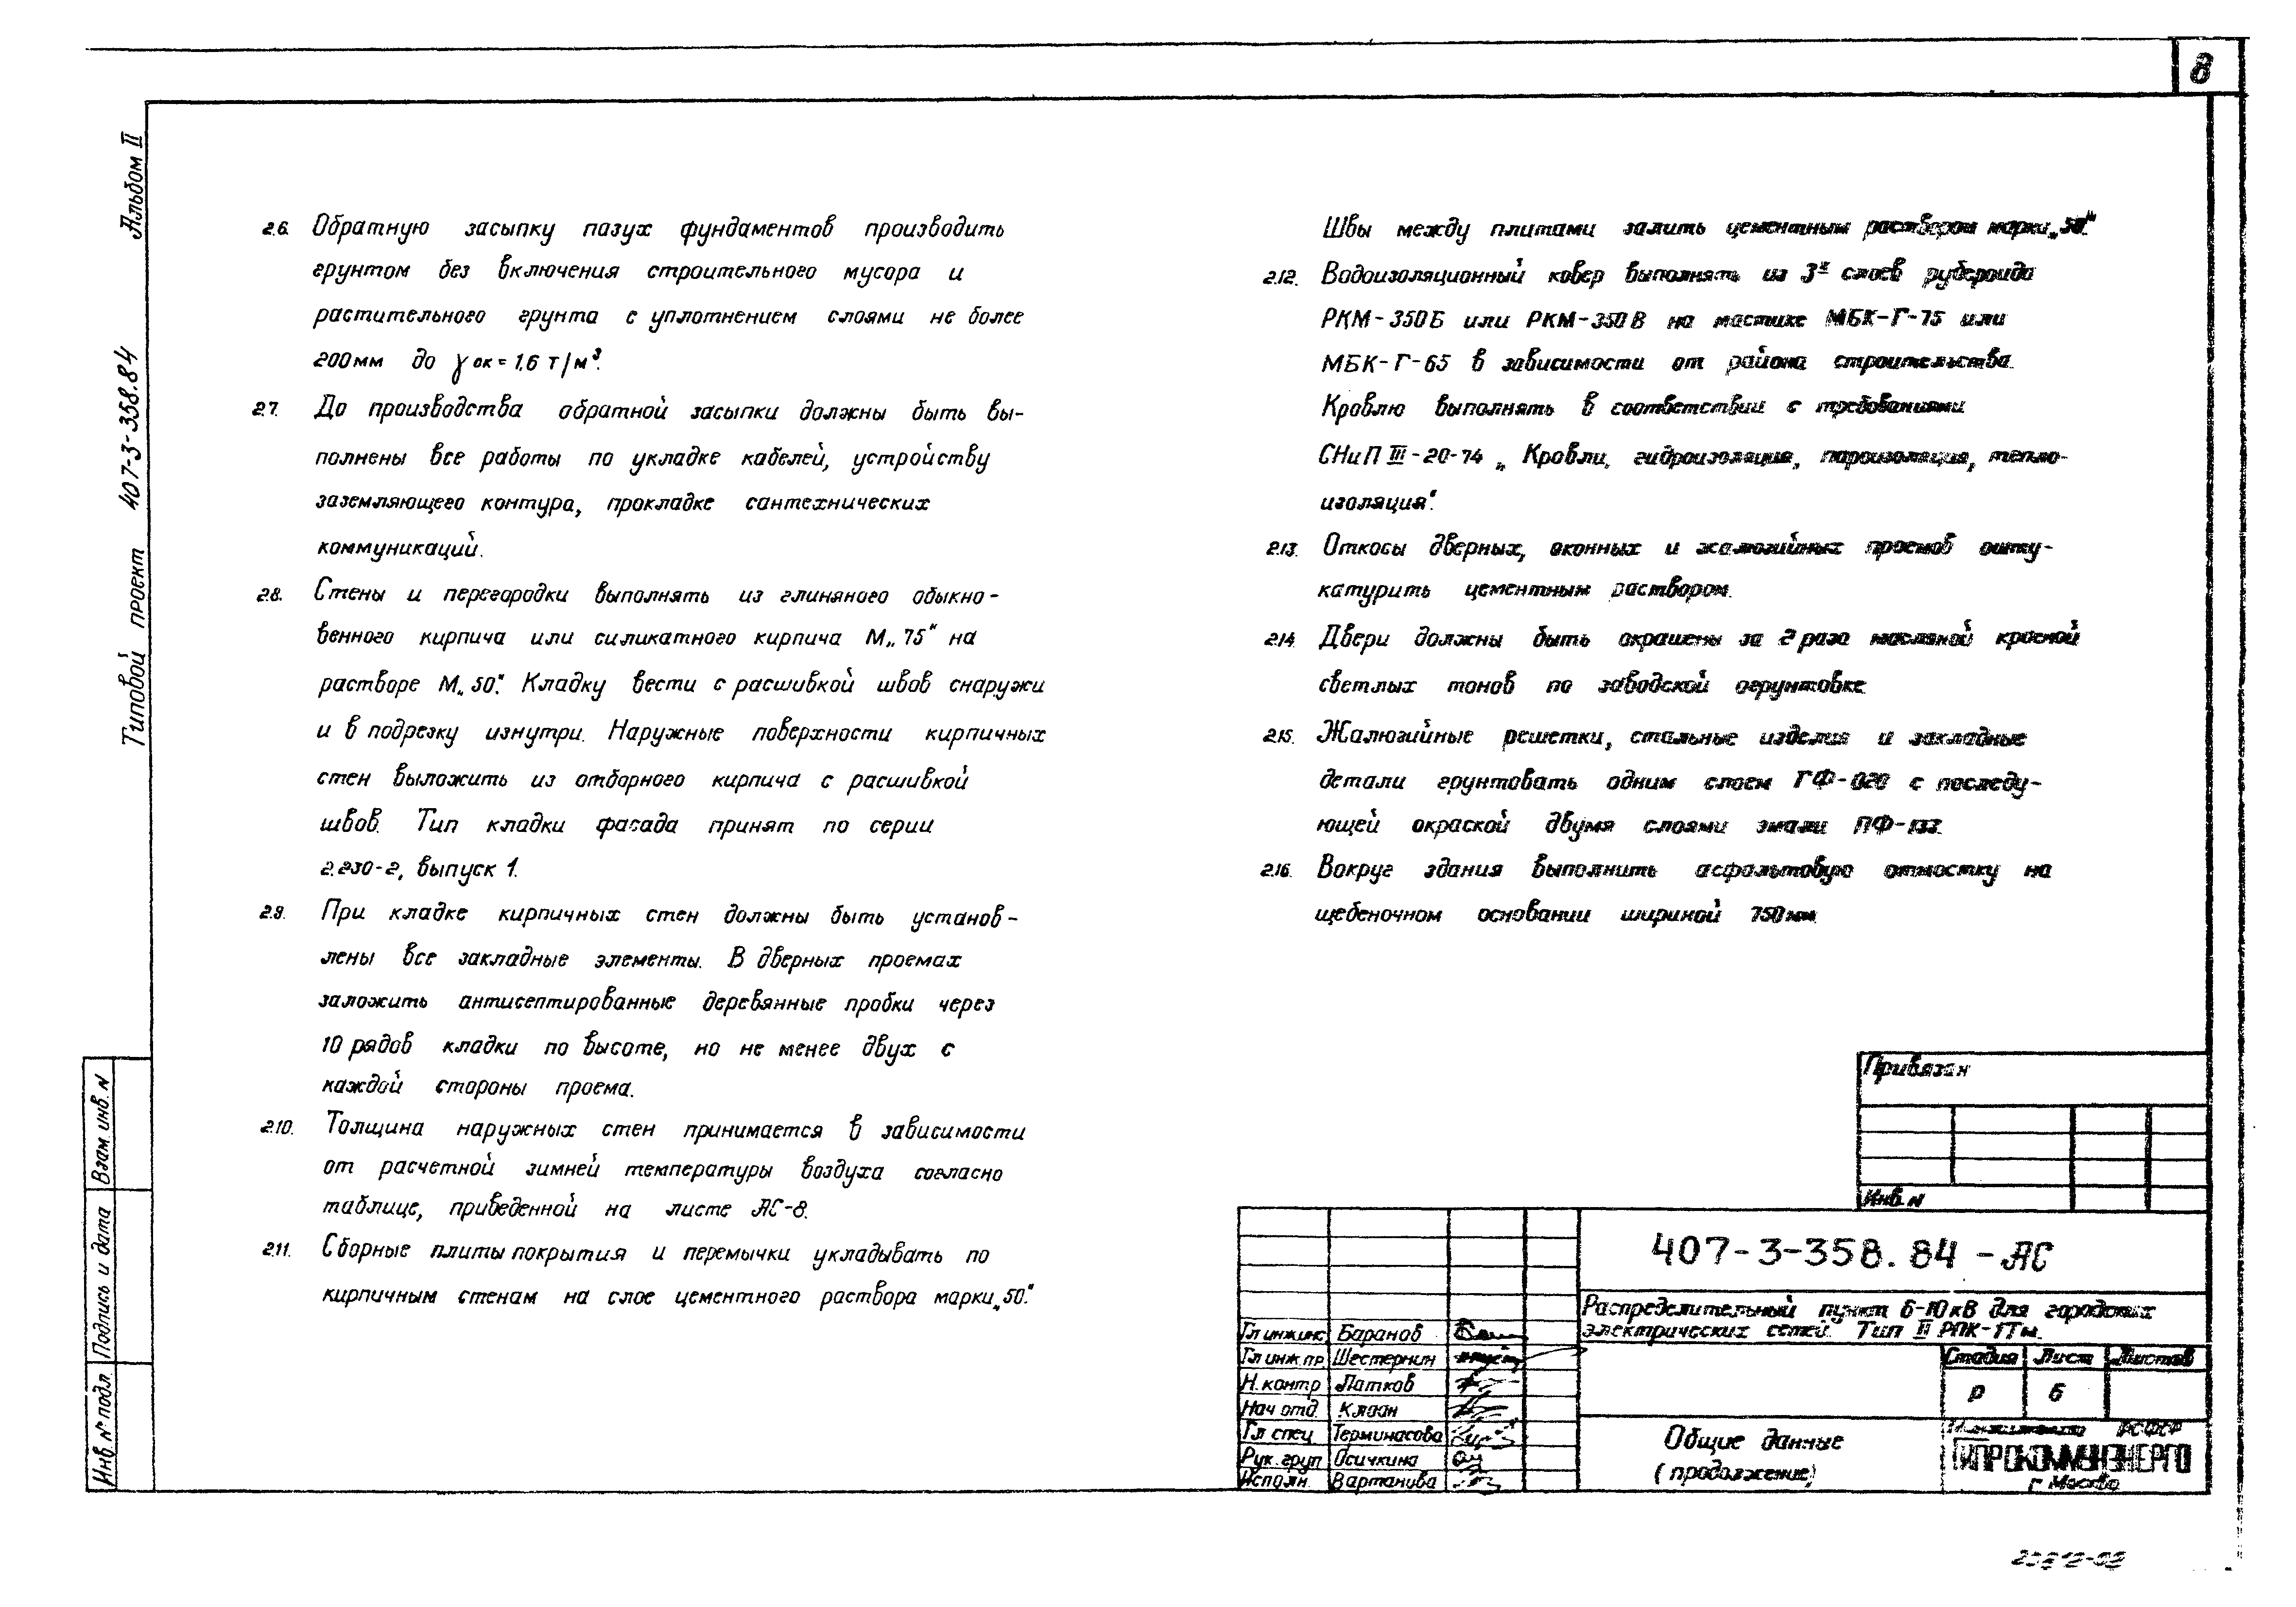 8
Альбом II
Типовой проект 407-3-358.84
2.6. Обратную засыпку пазух фундаментов производить
грунтом без включения строительного мусора и
растительного грунта с уплотнением слоями не более
200мм до γ ск = 1,6 т/м³.
2.7. До производства обратной засыпки должны быть вы-
полнены все работы по укладке кабелей, устройству
заземляющего контура, прокладке сантехнических
коммуникаций.
2.8. Стены и перегородки выполнять из глиняного обыкно-
венного кирпича или силикатного кирпича М„75" на
растворе М„50". Кладку вести с расшивкой швов снаружи
и в подрезку изнутри. Наружные поверхности кирпичных
стен выложить из отборного кирпича с расшивкой
швов. Тип кладки фасада принят по серии
2.230-2, выпуск 1.
2.9. При кладке кирпичных стен должны быть установ-
лены все закладные элементы. В дверных проемах
заложить антисептированные деревянные пробки через
10 рядов кладки по высоте, но не менее двух с
каждой стороны проема.
2.10. Толщина наружных стен принимается в зависимости
от расчетной зимней температуры воздуха согласно
таблице, приведенной на листе АС-8.
2.11. Сборные плиты покрытия и перемычки укладывать по
кирпичным стенам на слое цементного раствора марки„50".
Швы между плитами залить цементным раствором марки„50".
2.12. Водоизоляционный ковер выполнять из 3х слоев рубероида
РКМ-350Б или РКМ-350В на мастике МБК-Г-75 или
МБК-Г-65 в зависимости от района строительства.
Кровлю выполнять в соответствии с требованиями
СНиП III-20-74 „Кровли, гидроизоляция, пароизоляция, тепло-
изоляция".
2.13. Откосы дверных, оконных и жалюзийных проемов ошту-
катурить цементным раствором.
2.14. Двери должны быть окрашены за 2 раза масляной краской
светлых тонов по заводской огрунтовке.
2.15. Жалюзийные решетки, стальные изделия и закладные
детали грунтовать одним слоем ГФ-020 с последу-
ющей окраской двумя слоями эмали ПФ-133.
2.16. Вокруг здания выполнить асфальтовую отмостку на
щебеночном основании шириной 750мм.
Привязан
Инв.N
407-3-358.84-АС
Распределительный пункт 6-10кВ для городских
электрических сетей. Тип II РПК-1Тм.
Гл инжинс Баранов
Гл инж.пр. Шестернин
Н.контр Латков
Нач отд. Клаан
Гл спец Терминасова
Рук.груп Осичкина
Исполн. Вартанова
Стадия Лист Листов
Р 6
Общие данные
(продолжение)
РСФСР
ГИПРОКОММУНЭНЕРГО
г Москва
Взам.инв.N
Подпись и дата
Инв.N° подл.